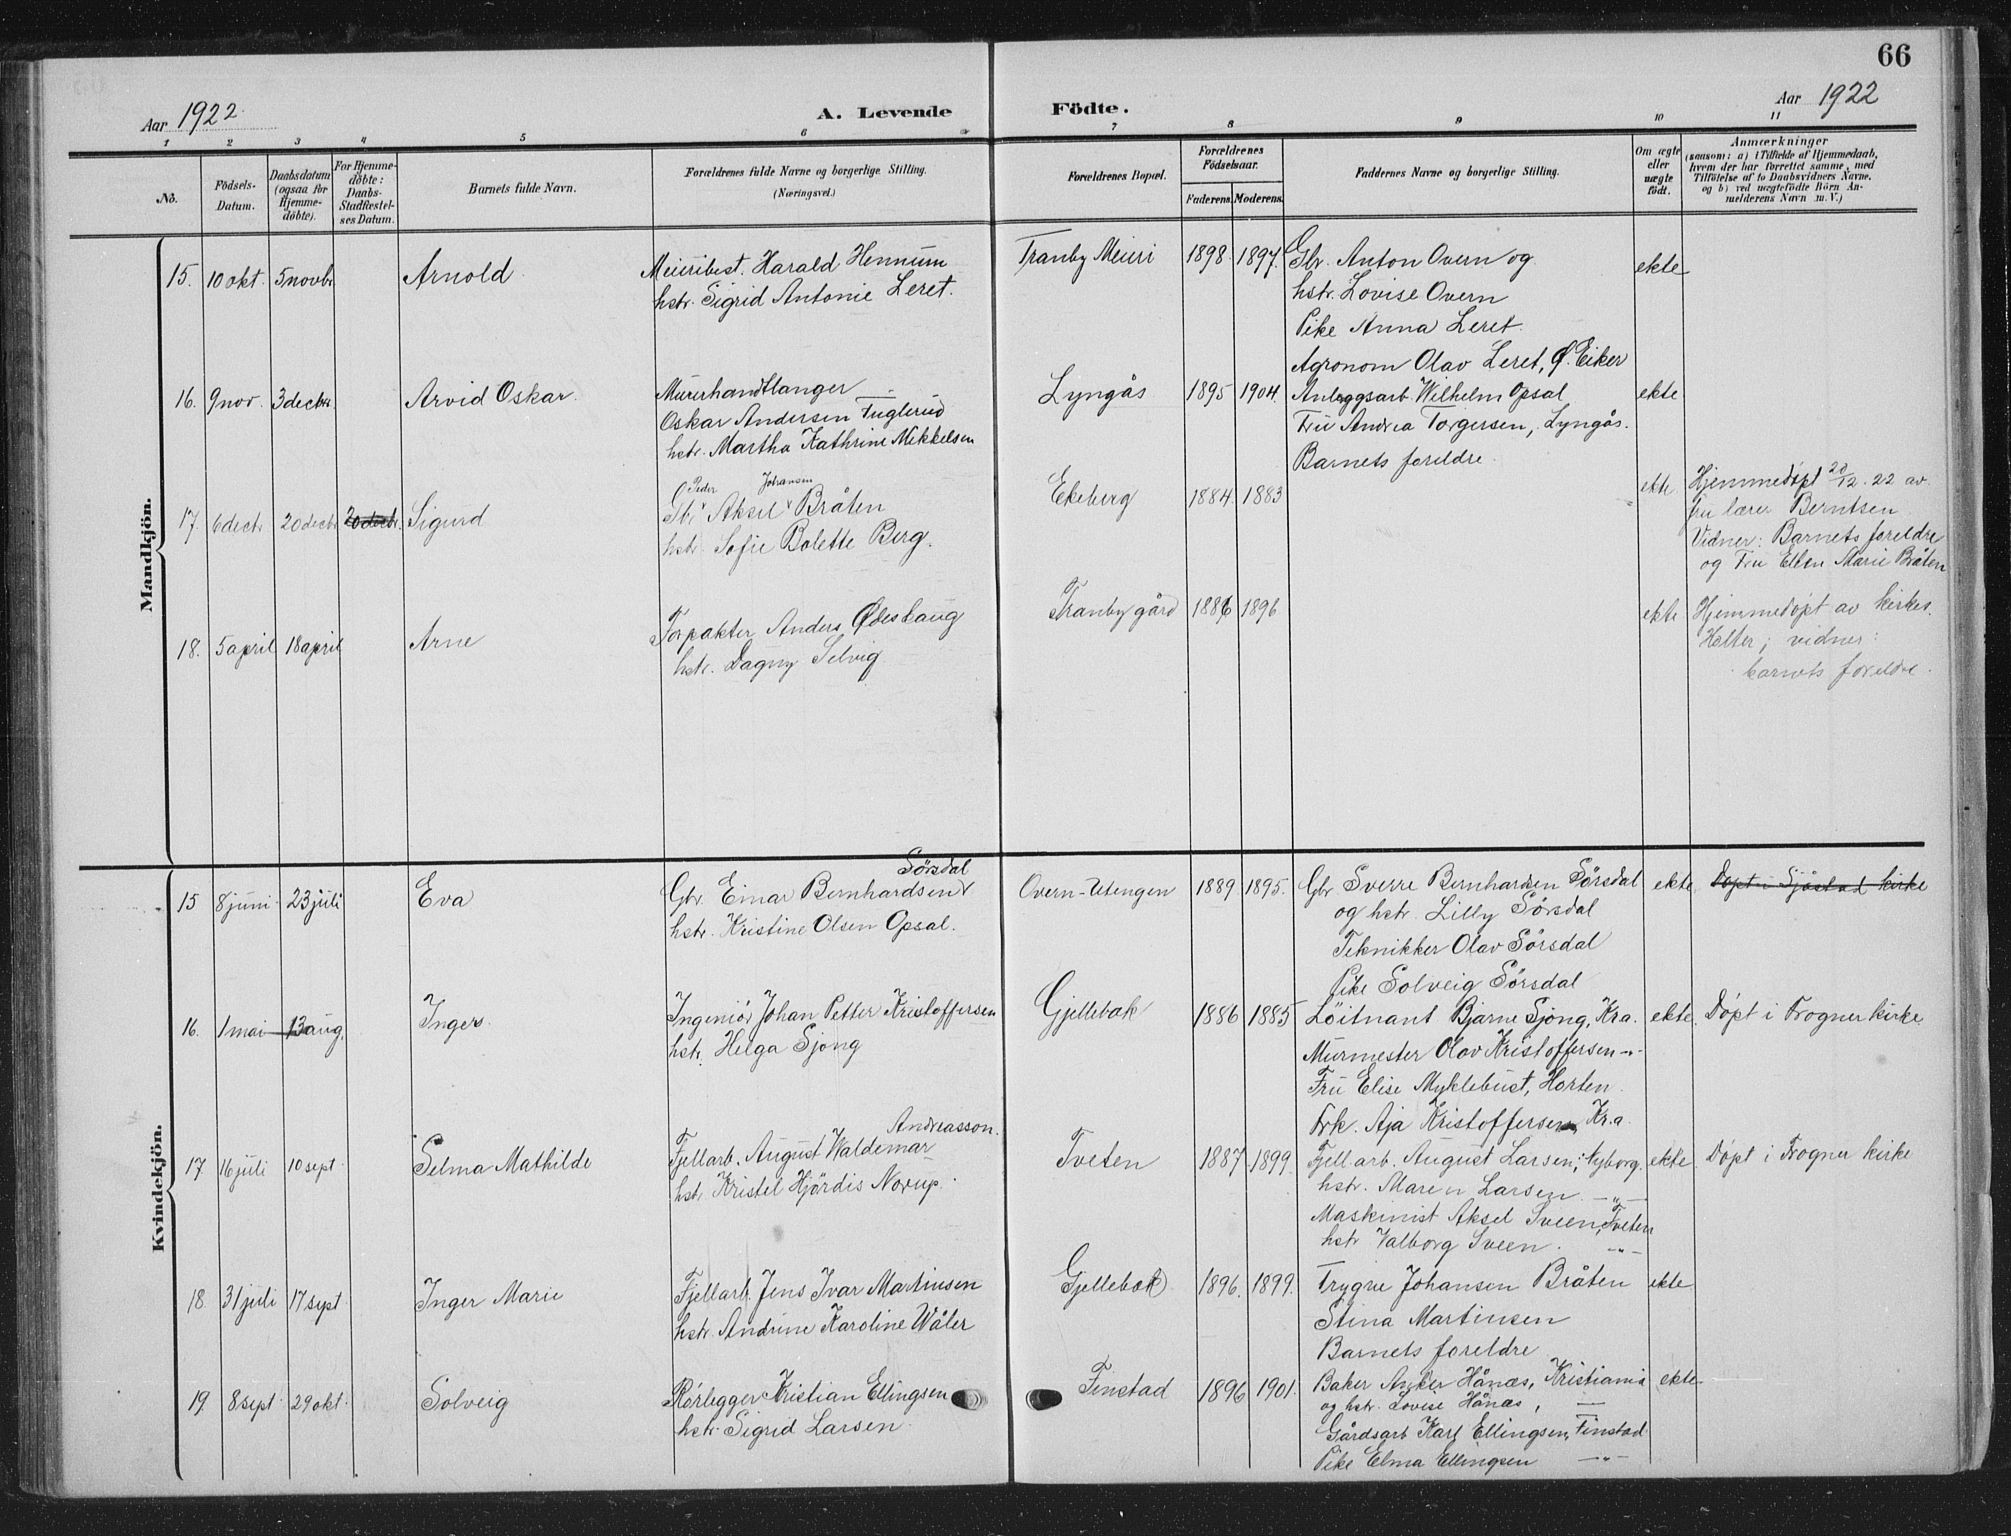 66
Aar 1922
A. Levende Födte.
Aar 1922
1 2 3 4 5 6 7 8 9 10 11
No.
Födsels-Datum.
Daabsdatum (ogsaa for Hjemme-döbte).
For Hjemme-döbte: Daabs-Stadfæstel-ses Datum.
Barnets fulde Navn.
Forældrenes fulde Navne og borgerlige Stilling.
(Næringsvei.)
Forældrenes Bopæl.
Forældrenes Födselsaar.
Faderens. Moderens.
Faddernes Navne og borgerlige Stilling.
Om ægte eller uægte födt.
Anmærkninger
(saasom: a) i Tilfælde af Hjemmedaab,
hvem der har forrettet samme, med
Tilföielse af to Daabsvidners Navne,
og b) ved uægtefödte Börn An-
melderens Navn m. V.)
Mandkjön.
15. 10 okt. 5 novbr. Arnold. Meieribest. Harald Hennum Tranby Meieri 1898. 1897. Gbr. Anton Overn og ekte
hstr. Sigrid Antonie Leret. hstr. Lovise Overn
Pike Anna Leret.
Agronom Olav Leret, Ø. Eiker
16. 9 nov. 3 decbr. Arvid Oskar. Murerhandtlanger Lyngås 1895 1904. Anleggsarb. Wilhelm Opsal ekte
Oskar Andersen Fuglerud Fru Andrea Torgersen, Lyngås.
hstr. Martha Kathrine Mikkelsen Barnets foreldre
Peder Johansen
17. 6 decbr. 20 decbr. 20 decbr. Sigurd Aksel Bråten Ekeberg 1884 1883 ekte Hjemmedøpt 20/12.22 av
hstr. Sofie Bolette Berg. fru lærer Berntsen
Vidner: Barnets foreldre
og Fru Ellen Marie Bråten
18. 5 april 18 april Arne Forpakter Anders Ødeshaug Tranby gård 1886 1896 ekte Hjemmedøpt av kirkes.
hstr. Dagny Selvig Halter; vidner:
barnets foreldre.
Kvindekjön.
Sörsdal
15 8 juni 23 juli Eva Gbr. Einar Bernhardsen Overn-Utengen 1889 1895. Gbr Sverre Bernhardsen Sörsdal ekte. Døpt i Sjåstad kirke
hstr. Kristine Olsen Opsal. og hstr. Lilly Sörsdal
Teknikker Olav Sörsdal
Pike Solveig Sörsdal
16. 1 mai 13 aug. Inger. Ingeniör Johan Petter Kristoffersen Gjellebæk 1886 1885 Löitnant Bjarne Sjong, Kra. ekte. Døpt i Frogner kirke.
hstr. Helga Sjong Murmester Olav Kristoffersen -"-
Fru Elise Myklebust, Horten.
Frk. Aja Kristoffersen, Kra.
Andreasson.
17 16 juli 10 sept. Selma Mathilde Fjellarb. August Waldemar Tveten 1887 1899. Fjellarb. August Larsen, Nyborg. ekte Døpt i Frogner kirke
hstr Kristel Hjördis Norup. hstr. Maren Larsen -"-
Maskinist Aksel Sveen, Tveten
hstr Valborg Sveen. -"-
18. 31 juli 17 sept Inger Marie Fjellarb. Jens Ivar Martinsen Gjellebæk 1896. 1899. Trygve Johansen Bråten ekte
hstr. Andrine Karoline Wåler Stina Martinsen
Barnets foreldre
19. 8 sept. 29 okt. Solveig Rörlegger Kristian Ellingsen Finstad 1896 1901. Baker Anker Hånæs, Kristiania ekte
hstr. Sigrid Larsen. og hstr. Lovise Hånæs, —
Gårdsarb Karl Ellingsen, Finstad
Pike Elma Ellingsen -"-